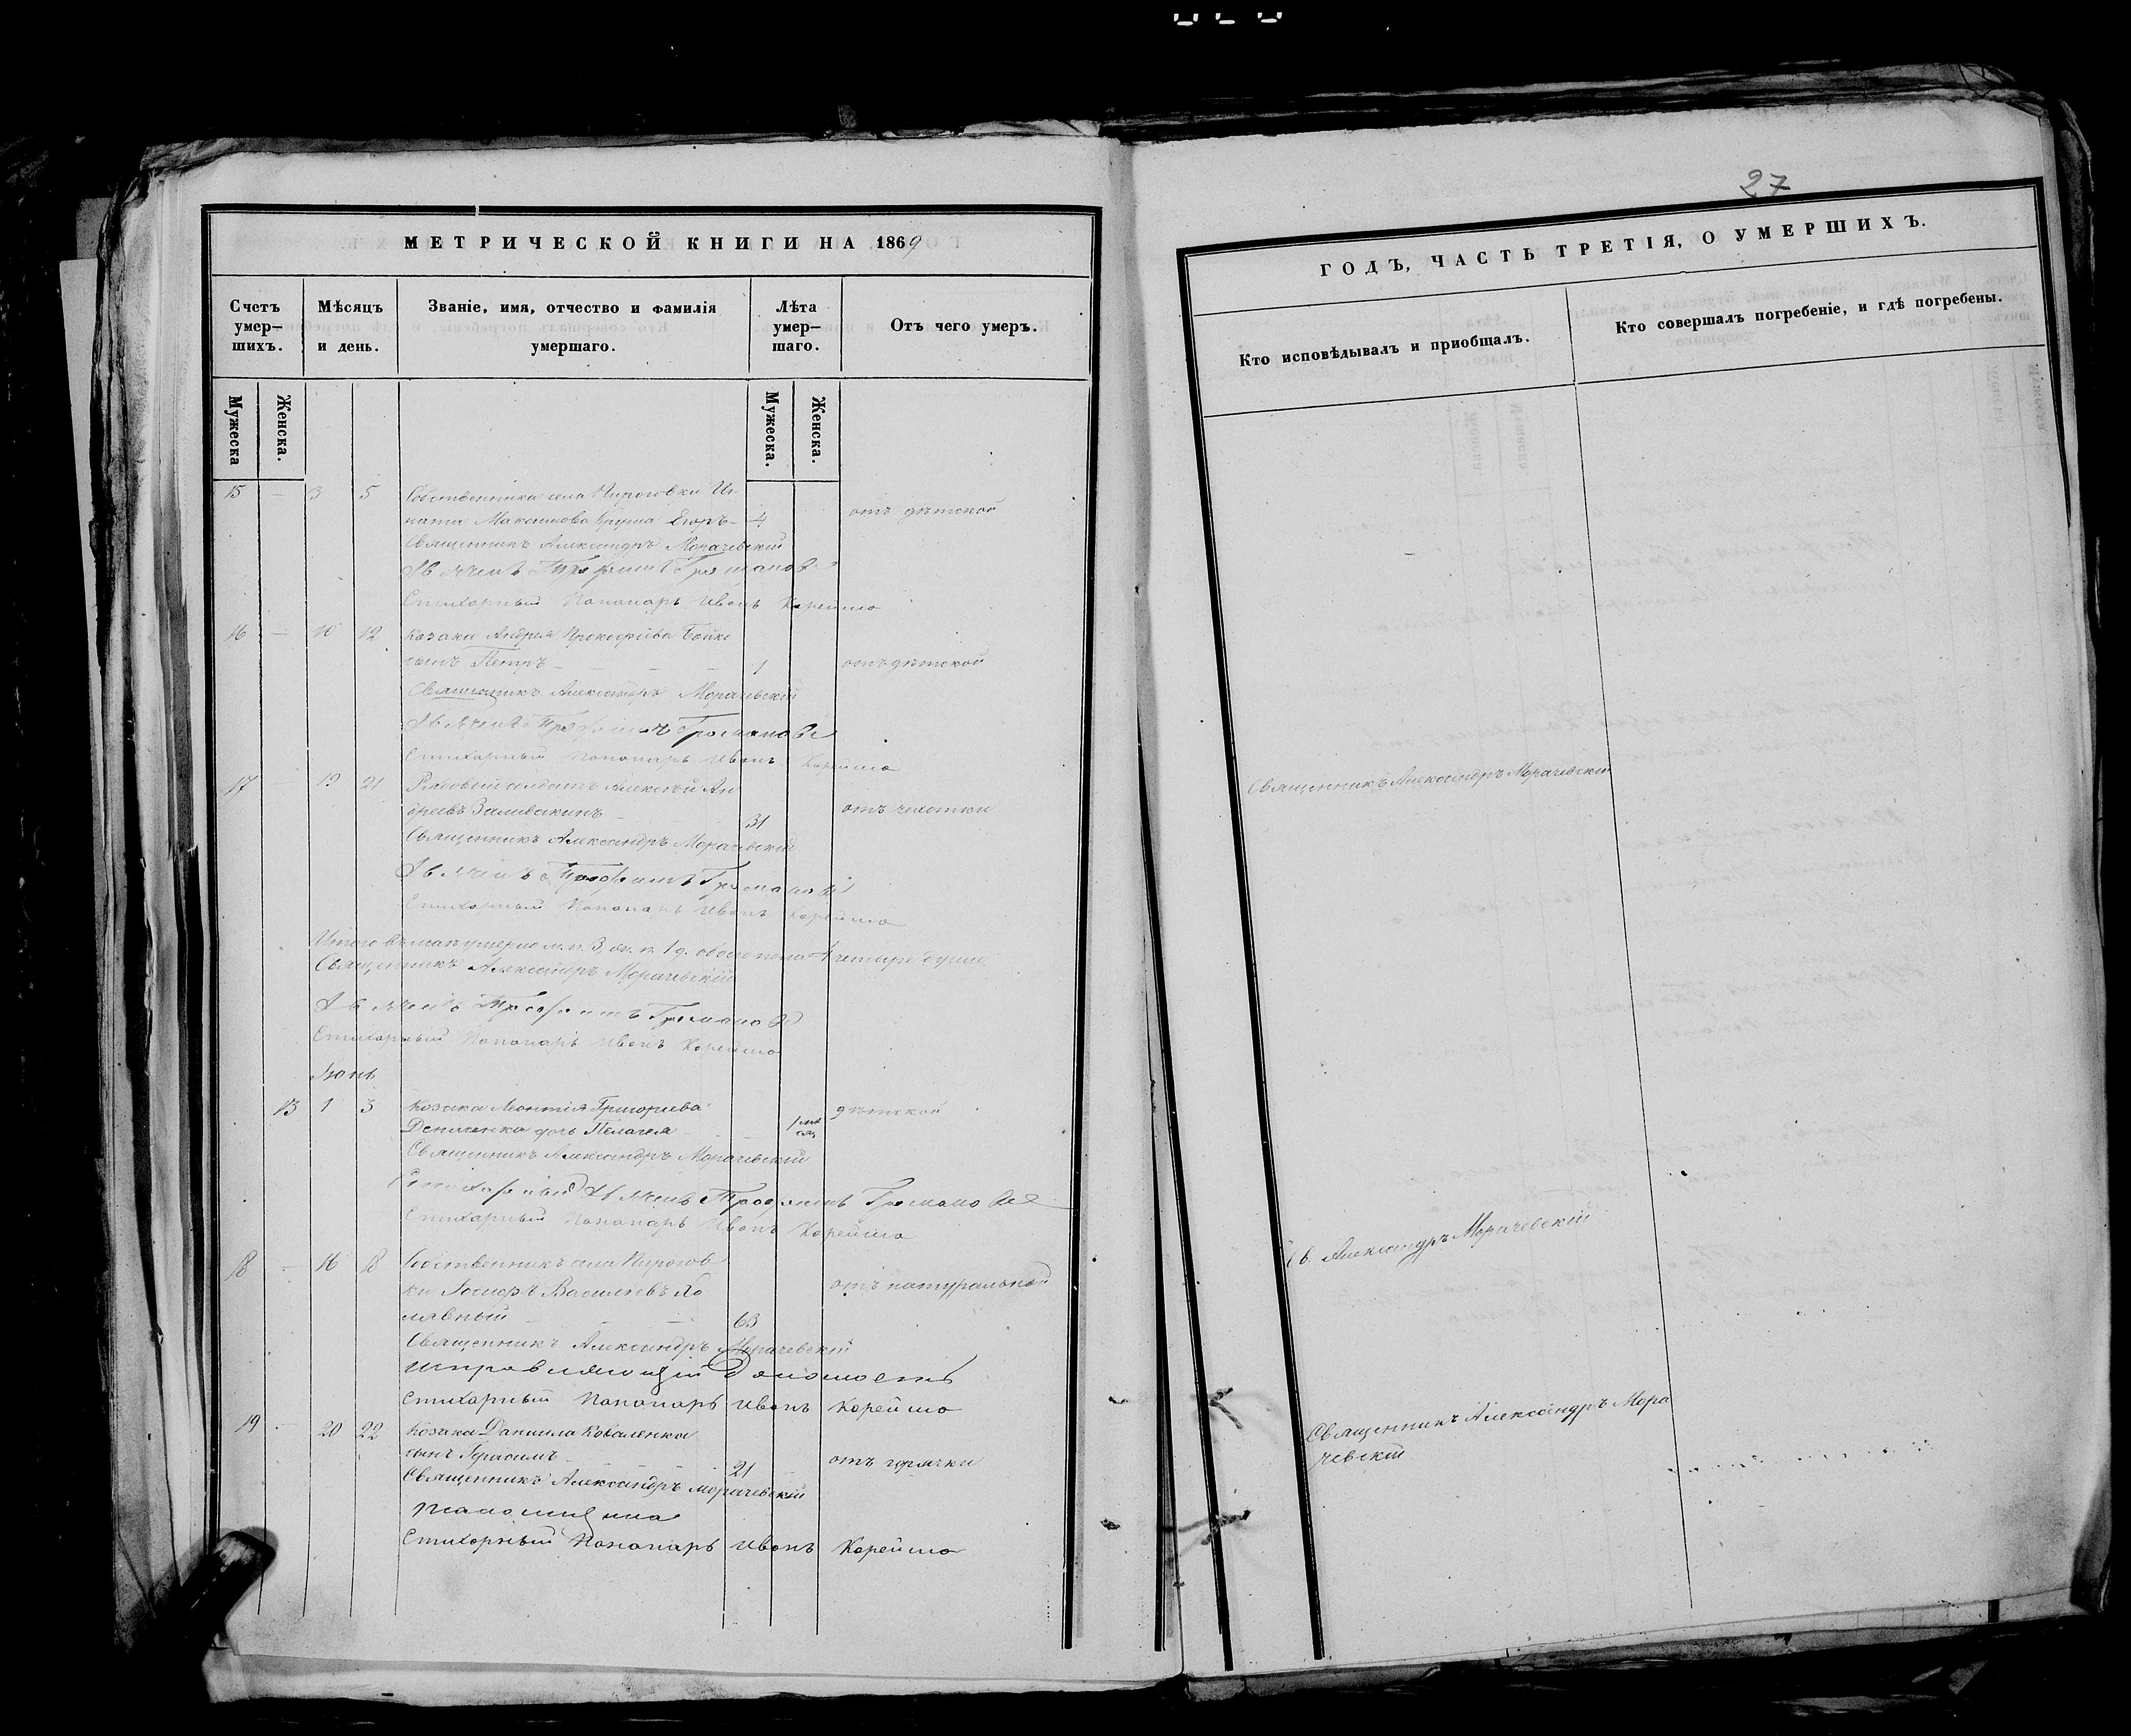 27
МЕТРИЧЕСКОЙ КНИГИ НА 1869
ГОДЪ, ЧАСТЬ ТРЕТІЯ, О УМЕРШИХЪ.
Счетъ умер–шихъ.
Мѣсяцъ и день.
Званіе, имя, отчество и фамилія умершаго.
Лѣта умер–шаго.
Отъ чего умеръ.
Кто исповѣдывалъ и приобщалъ.
Кто совершалъ погребеніе, и гдѣ погребены.
Мужеска
Женска.
Мужеска.
Женска.
15 — 3 5 Собственника села Пироговки Иг-
ната Максимова Егоръ — 4 отъ дѣтской
Священникъ Александръ Морачевскій
Дьячекъ Трофимъ
Стихарный Пономарь Иванъ Корейша
16 — 10 12 Козака Андрея Прокофіева Бойко
сынъ Петръ — 1 отъ дѣтской
Священникъ Александръ Морачевскій
Дьячекъ Трофимъ
Стихарный Пономарь Иванъ Корейша
17 19 21 Рядовый солдатъ Алексѣй Ан
дреевъ 31 отъ чахотки
Священникъ Александръ Морачевскій
Священникъ Александръ Морачевскій
Дьячекъ Трофимъ
Стихарный Пономарь Иванъ Корейша
Итого въ маѣ умерло м. п. 3, ж. п. 1, обоего пола 4 четыре души
Священникъ Александръ Морачевскій
Дьячекъ Трофимъ
Стихарный Пономарь Иванъ Корейша
Іюнь
13 1 3 Козака Леонтія Григорьева
дочь Пелагея — 1 мѣ сяц дѣтской
Священникъ Александръ Морачевскій
Стихарный Дьячекъ Трофимъ
Стихарный Пономарь Иванъ Корейша
18 — 16 18 Собственникъ села Пирогов
ки Іосифъ Васильевъ
63 отъ натуральной
Св. Александръ Морачевскій
Священникъ Александръ Морачевскій
Стихарный Пономарь Иванъ Корейша
19 — 20 22 Козака Даніила Коваленка
сынъ Герасимъ 21 отъ горячки
Священникъ Александръ Мора
чевскій
Священникъ Александръ Морачевскій
Стихарный Пономарь Иванъ Корейша